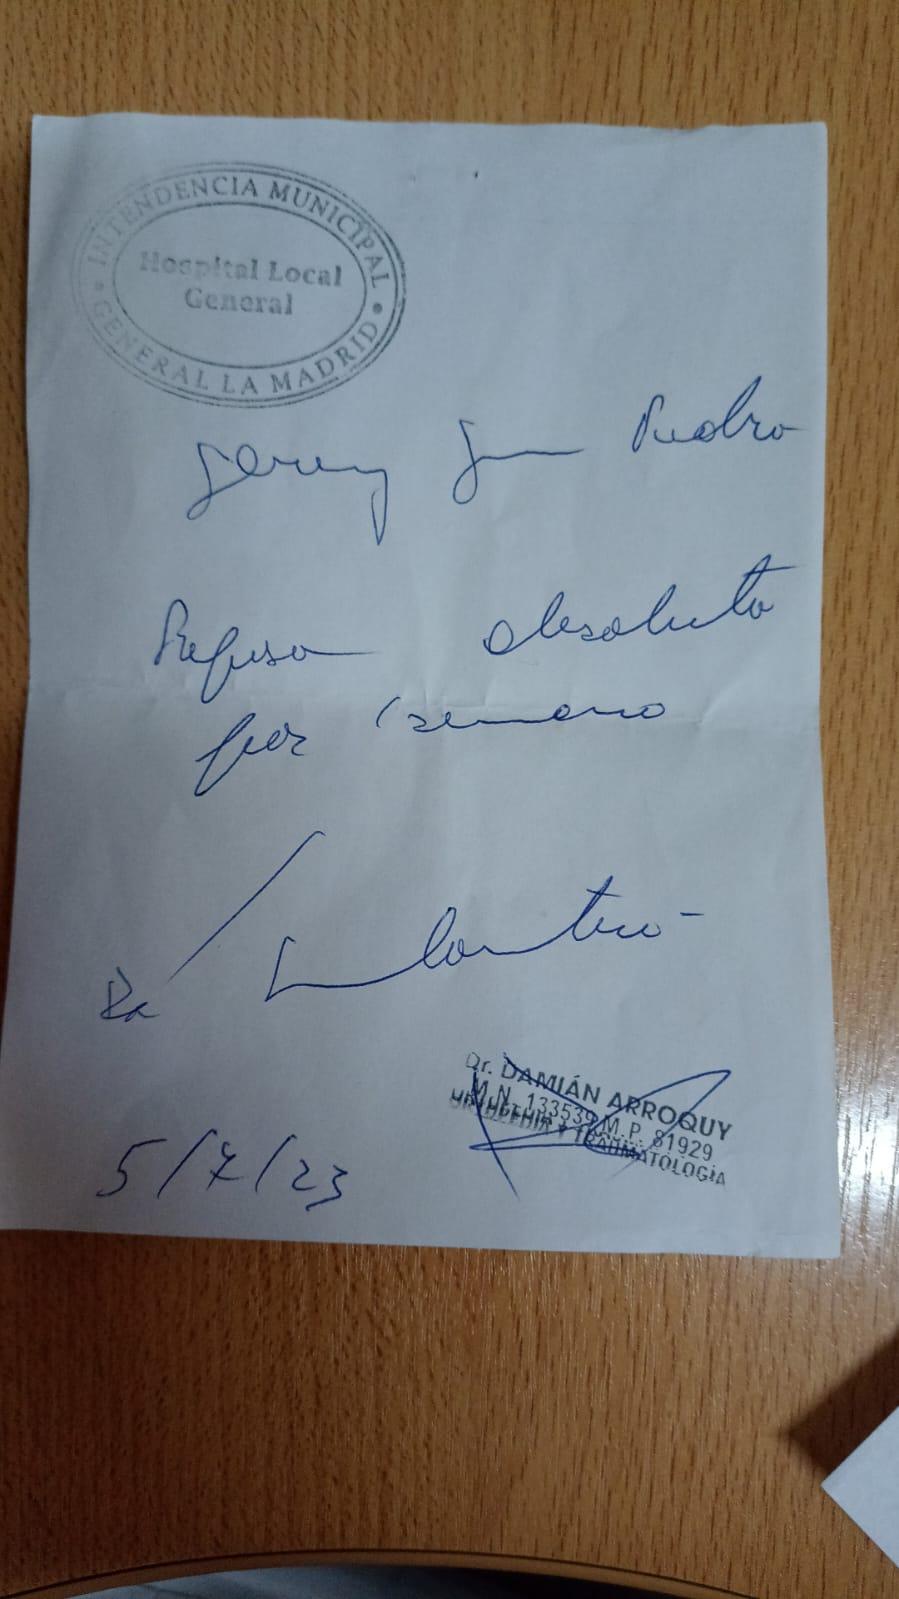 INTENDENCIA MUNICIPAL
Hospital Local
General
GENERAL LA MADRID
Juan Pedro
Reposo absoluto
por 1 semana
5/7/23
Dr. DAMIÁN ARROQUY
M.N. 133539 M.P. 81929
Y TRAUMATOLOGÍA